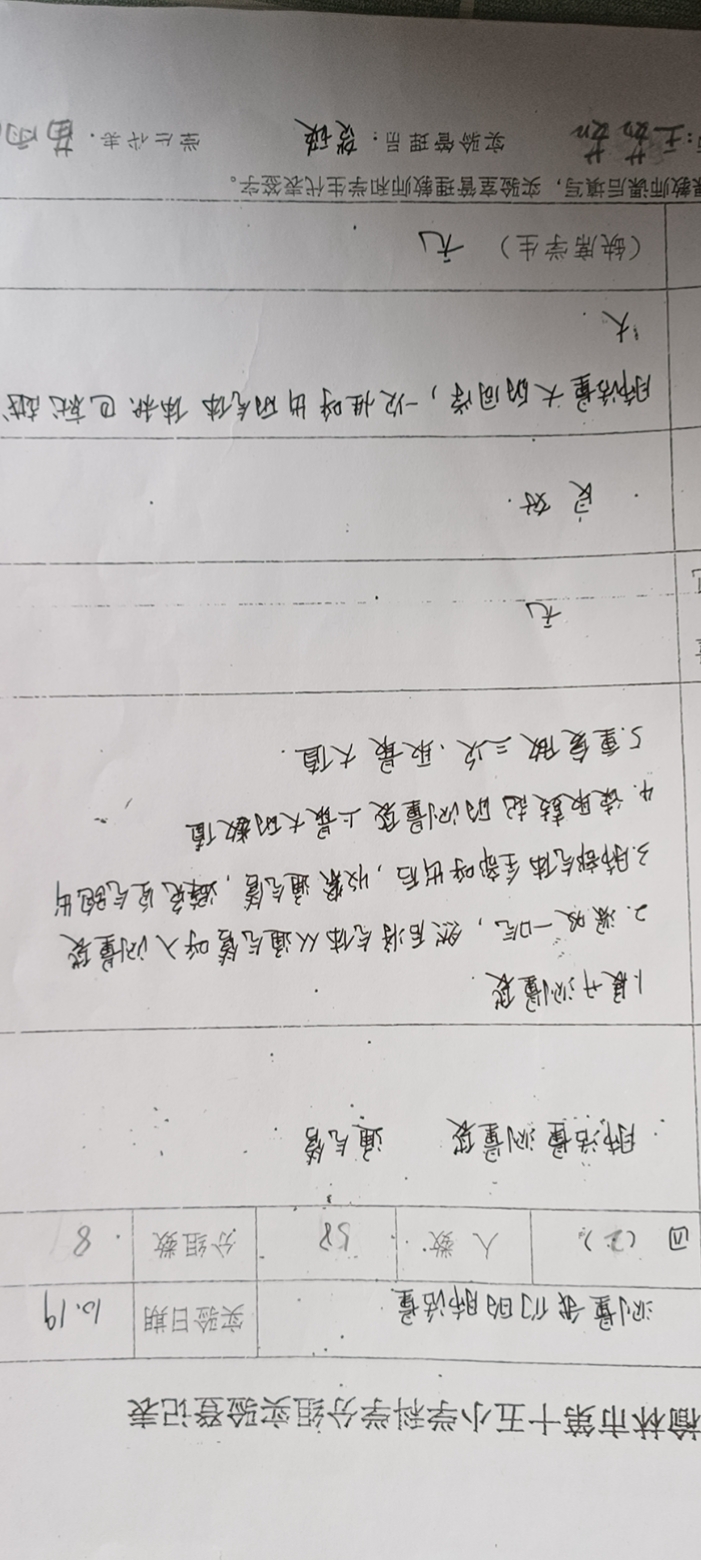 榆林市第十五小学科学分组实验登记表
测量我们的肺活量 实验日期 10.19
四（2） 人数 58 分组数 8
肺活量测量袋 通气管
1.展开测量袋.
2.深吸一口气，然后将气体从通气管呼入测量袋
3.肺部气体全部呼出后，收紧通气管，避免空气跑出
4.读取鼓起的测量袋上最大的数值
5.重复做三次、取最大值.
无
良好.
肺活量大的同学，一次性呼出的气体体积也就越
大.
（缺席学生） 无
课教师课后填写，实验室管理教师和学生代表签字。
实验管理员： 学生代表：